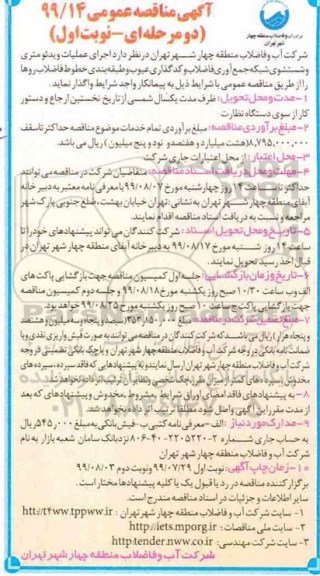 شرکت آب و فاضلاب منطقه چهار
شهر تهران
آگهی مناقصه عمومی ۹۹/۱۴
(دو مرحله‌ای - نوبت اول)
شرکت آب و فاضلاب منطقه چهار شهر تهران در نظر دارد اجرای عملیات ویدئو متری
و شستشوی شبکه جمع‌آوری فاضلاب و کدگذاری عیوب و طبقه‌بندی خطوط فاضلاب‌روها
را از طریق مناقصه عمومی با شرایط ذیل به پیمانکار واجد شرایط واگذار نماید.
۱-مدت و محل تحویل: ظرف مدت یکسال شمسی از تاریخ نخستین ارجاع و دستور
کار از سوی دستگاه نظارت
۲-مبلغ برآوردی مناقصه: مبلغ برآوردی تمام خدمات موضوع مناقصه حداکثر تا سقف
۸,۷۹۵,۰۰۰,۰۰۰(هشت میلیارد و هفتصد و نود و پنج میلیون) ریال می باشد.
۳-محل اعتبار: از محل اعتبارات جاری شرکت
۴-مهلت و محل دریافت اسناد مناقصه: متقاضیان شرکت در مناقصه می توانند
حداکثر تا ساعت ۱۴ روز چهارشنبه مورخ ۹۹/۰۸/۰۷ با معرفی نامه معتبر به دبیرخانه
آبفای منطقه چهار شهر تهران به نشانی: تهران خیابان بهشت، ضلع جنوبی پارک شهر
مراجعه و نسبت به دریافت اسناد مناقصه اقدام نمایند.
۵-تاریخ و محل تحویل اسناد: شرکت کنندگان می تواند پیشنهادهای خود را تا
ساعت ۱۴ روز شنبه مورخ ۹۹/۰۸/۱۷ به دبیرخانه آبفای منطقه چهار شهر تهران در
قبال اخذ رسید تحویل نمایند.
۶-تاریخ و زمان بازگشایی: جلسه اول کمیسیون مناقصه جهت بازگشایی پاکت های
الف و ب ساعت ۱۰/۳۰ صبح روز یکشنبه مورخ ۹۹/۰۸/۱۸ و جلسه دوم کمیسیون مناقصه
جهت بازگشایی پاکت ج ساعت ۱۰ صبح روز یکشنبه مورخ ۹۹/۰۸/۲۵ خواهد بود.
۷-مبلغ تضمین شرکت در مناقصه: مبلغ
و پنجاه هزار) ریال می باشد که شرکت کنندگان در مناقصه می توانند به صورت فیش واریز نقدی و یا
ضمانت نامه بانکی در وجه شرکت آب و فاضلاب منطقه چهار شهر تهران و یا چک بانکی تضمینی در وجه
شرکت آب و فاضلاب منطقه چهار شهر تهران ارسال نمایند و به پیشنهادهایی که فاقد سپرده، سپرده های
مخدوش، سپرده های کمتر از میزان مقرر، چک شخصی و نظایر آن ترتیب اثر داده نخواهد شد.
۸- به پیشنهادهای فاقد امضاء، اوراق شرایط، مشروط، مخدوش و پیشنهادهای که بعد
از مدت مقرر در آگهی واصل شود مطلقا ترتیب اثر داده نخواهد شد.
۹-مدارک مورد نیاز: الف-معرفی نامه کتبی ب-فیش بانکی به مبلغ ۵۴۵,۰۰۰ ریال
به حساب جاری شماره نزد بانک سامان شعبه بازار به نام
شرکت آب و فاضلاب منطقه چهار شهر تهران
۱۰-زمان چاپ آگهی: نوبت اول ۹۹/۰۷/۲۹ و نوبت دوم ۹۹/۰۸/۰۳
برگزار کننده مناقصه در رد یا قبول یک یا کلیه پیشنهادها مختار است.
سایر اطلاعات و جزئیات در اسناد مناقصه مندرج است.
۱- سایت شرکت آب و فاضلاب منطقه چهار شهر تهران: http://t4ww.tppww.ir
۲- سایت ملی مناقصات: http://iets.mporg.ir
۳- سایت شرکت مهندسی: http:tender.nww.co.ir
شرکت آب و فاضلاب منطقه چهار شهر تهران